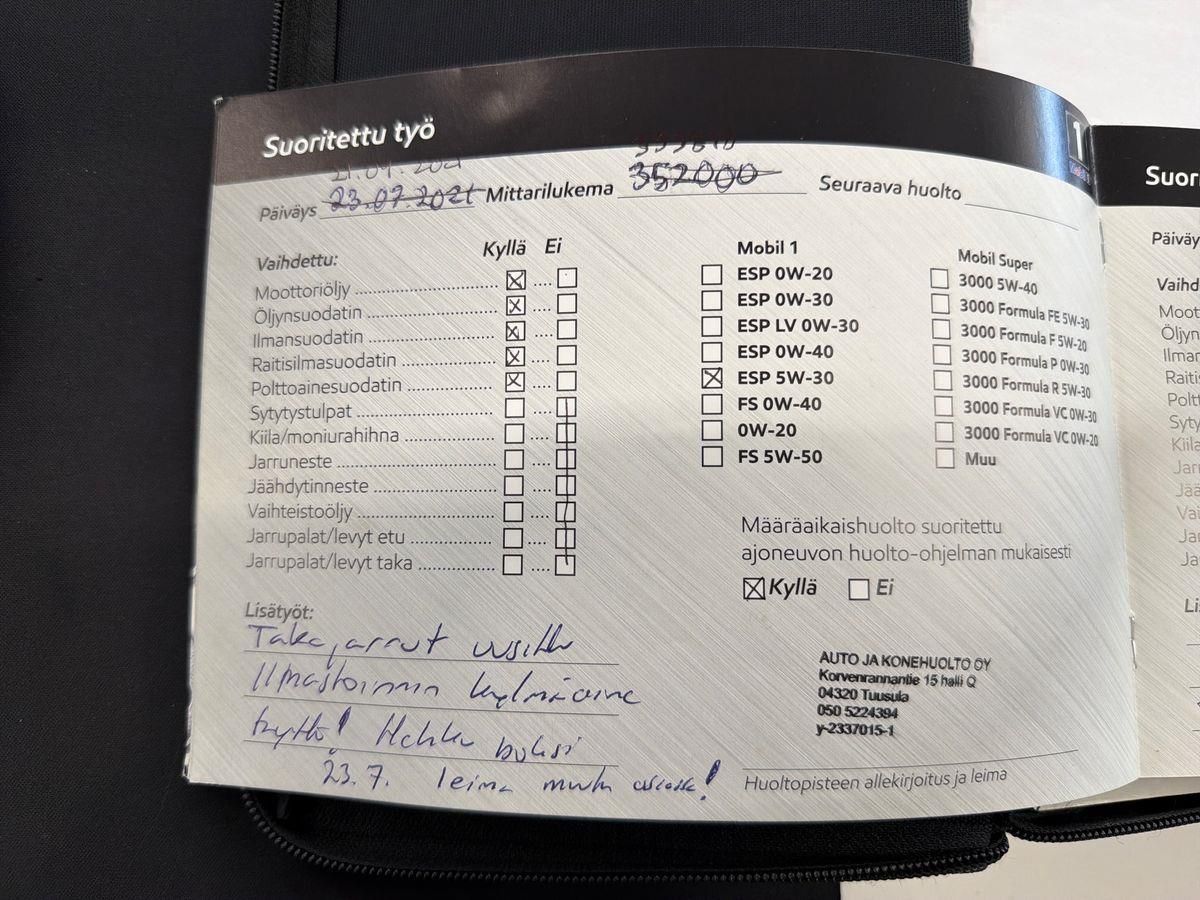 Suoritettu työ
1
Suori
21.09.2021
353810
Päiväys 23.07.2021 Mittarilukema 352000 Seuraava huolto
Vaihdettu: Kyllä Ei
Moottoriöljy
Öljynsuodatin
Ilmansuodatin
Raitisilmasuodatin
Polttoainesuodatin
Sytytystulpat
Kiila/moniurahihna
Jarruneste
Jäähdytinneste
Vaihteistoöljy
Jarrupalat/levyt etu
Jarrupalat/levyt taka
Mobil 1
ESP 0W-20
ESP 0W-30
ESP LV 0W-30
ESP 0W-40
ESP 5W-30
FS 0W-40
0W-20
FS 5W-50
Mobil Super
3000 5W-40
3000 Formula FE 5W-30
3000 Formula F 5W-20
3000 Formula P 0W-30
3000 Formula R 5W-30
3000 Formula VC 0W-30
3000 Formula VC 0W-20
Muu
Määräaikaishuolto suoritettu
ajoneuvon huolto-ohjelman mukaisesti
Kyllä Ei
Lisätyöt:
Takajarrut uusittu
Ilmastoinnin kylmäaine
23.7. leima
AUTO JA KONEHUOLTO OY
Korvenrannantie 15 halli Q
04320 Tuusula
050 5224394
y-2337015-1
Huoltopisteen allekirjoitus ja leima
Päiväy
Vaihd
Moot
Öljyn
Ilman
Raitis
Poltt
Syty
Kiila
Jarr
Jää
Vai
Jar
Ja
Li